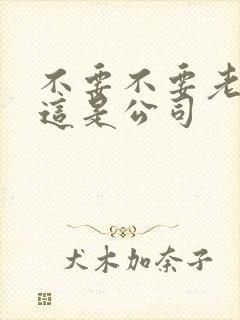 不要不要老
這是公司
犬木加奈子